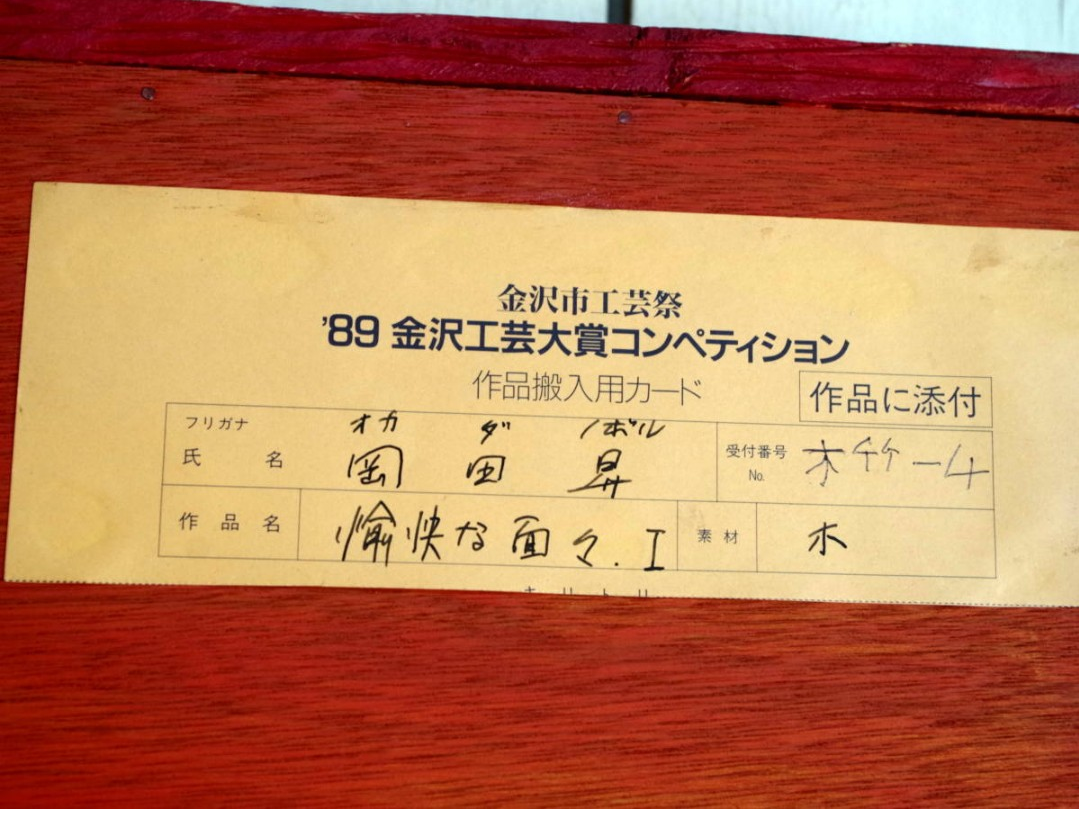 金沢市工芸祭
'89 金沢工芸大賞コンペティション
作品搬入用カード
作品に添付
フリガナ オカ ダ ノボル
氏名 岡田昇
受付番号 No. 木竹-4
作品名 愉快な面々.I
素材 木
キリトリ